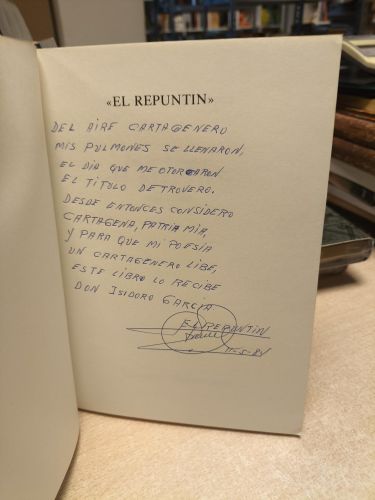 «EL REPUNTIN»
DEL AIRE CARTAGENERO
MIS PULMONES SE LLENARON,
EL DIA QUE ME OTORGARON
EL TITULO DE TROVERO.
DESDE ENTONCES CONSIDERO
CARTAGENA, PATRIA MIA,
Y PARA QUE MI POESIA
UN CARTAGENERO LIBE,
ESTE LIBRO LO RECIBE
DON ISIDORO GARCIA
EL REPUNTIN